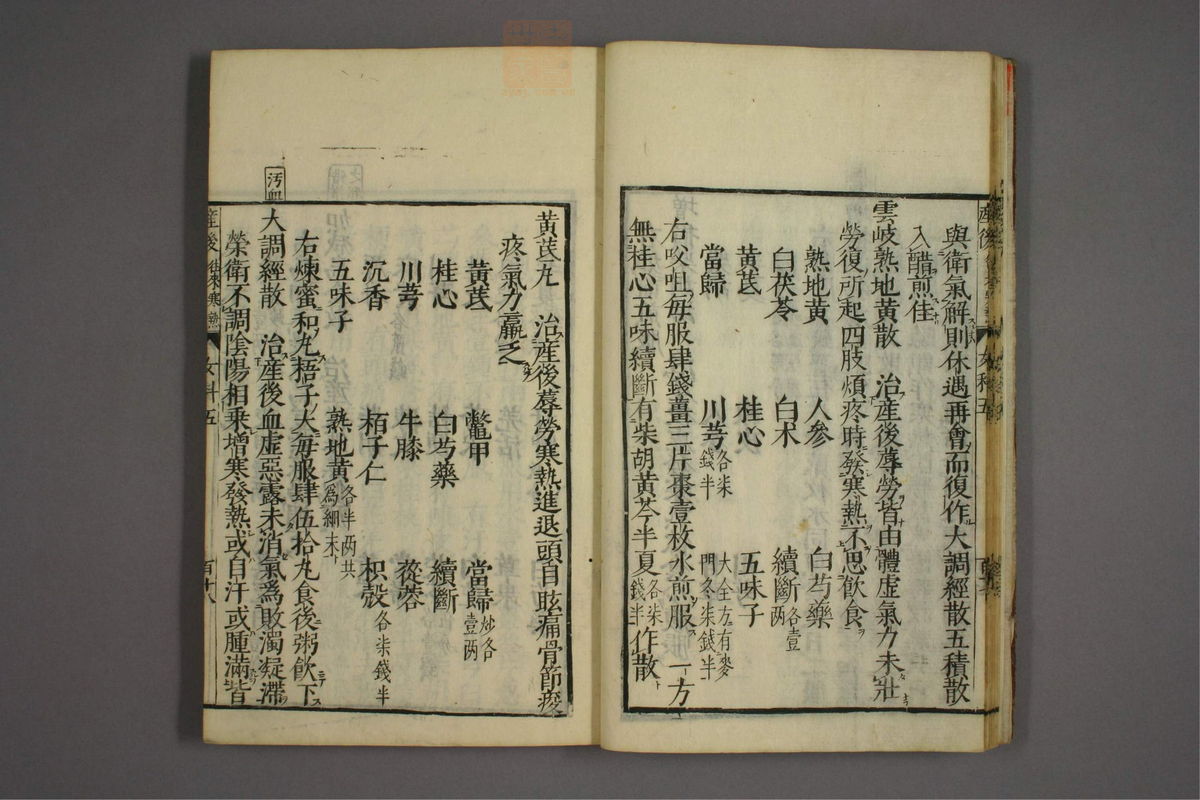 與衛氣解則休遇再會而復作大調經散五積散
入醋煎佳
雲岐熟地黄散　治產後蓐勞皆由體虛氣力未壯
勞復所起四肢煩疼時發寒熱不思飲食
熟地黄　人參　白芍藥
白茯苓　白朮　續斷各壹两
黄芪　桂心　五味子
當歸　川芎各柒錢半　大全方有麥門冬柒錢半
右㕮咀每服肆錢薑三片棗壹枚水煎服　一方
無桂心五味續斷有柴胡黄芩半夏各柒錢半作散
產後　女科五
黄芪丸　治產後蓐勞寒熱進退頭目眩痛骨節痠
疼氣力羸乏
黄芪　鱉甲　當歸炒各壹两
桂心　白芍藥　續斷
川芎　牛膝　蓯蓉
沉香　栢子仁　枳殼各柒錢半
五味子　熟地黄各半两共爲細末
右煉蜜和丸梧子大每服肆伍拾丸食後粥飲下
汚血
大調經散　治產後血虛惡露未消氣爲敗濁凝滯
榮衛不調陰陽相乗增寒發熱或自汗或腫滿皆
產後　往來寒熱　女科五　百廿八